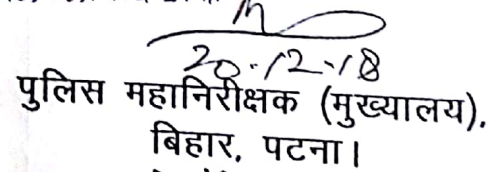 20.12.18
पुलिस महानिरीक्षक (मुख्यालय),
बिहार, पटना।